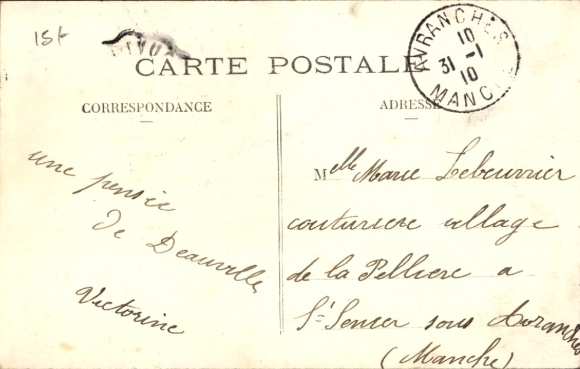 15f
CARTE POSTALE
AVRANCHES
10
31 -1
10
MANCHE
CORRESPONDANCE
ADRESSE
une pensée
de Deauville
Victorine
Melle Marie Lebeurrier
couturiere village
de la Pelliere a
St Senier sous Avranches
(Manche)